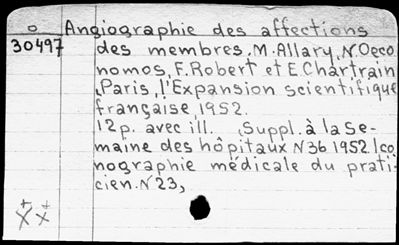 o Angiographie des affections
30497 des membres. M. Allary, N. Oeco
nomos, F. Robert et E. Chartrain
, Paris, l'Expansion scientifique
française, 1952.
12p. avec ill. , Suppl. à la Se-
maine des hôpitaux N 36 1952. Ico
nographie médicale du prati-
cien. N 23,